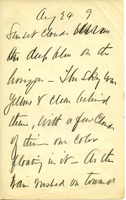 Aug 24 9
Sunset clouds
the deep blue on the
horizon - The sky was
yellow & clear behind
them, with a few clouds
of the own color
floating in it - As the
train rushed on toward